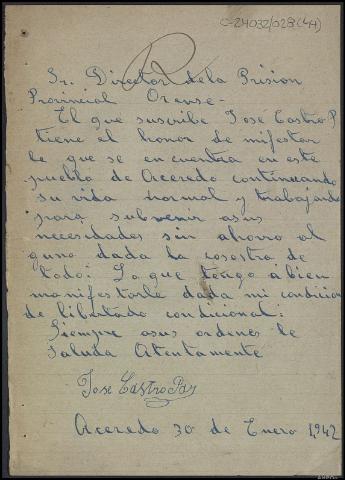 C-24032/023(4A)
R
Sr. Director dela Prision
Provincial Orense-
El que suscribe Jose Castro P
tiene el honor de mifestar
le que se en cuentra en este
pueblo de Aceredo continuando
su vida normal y trabajando
para subvenir asus
necesidades sin ahorro al
guno dada la cosostra de
todo: Lo que tengo abien
manifestarle dada mi condicion
de libertado condicional:
Siempre asus ordenes le
Saluda Atentamente
Jose Castro Paz
Aceredo 30 de Enero 1942